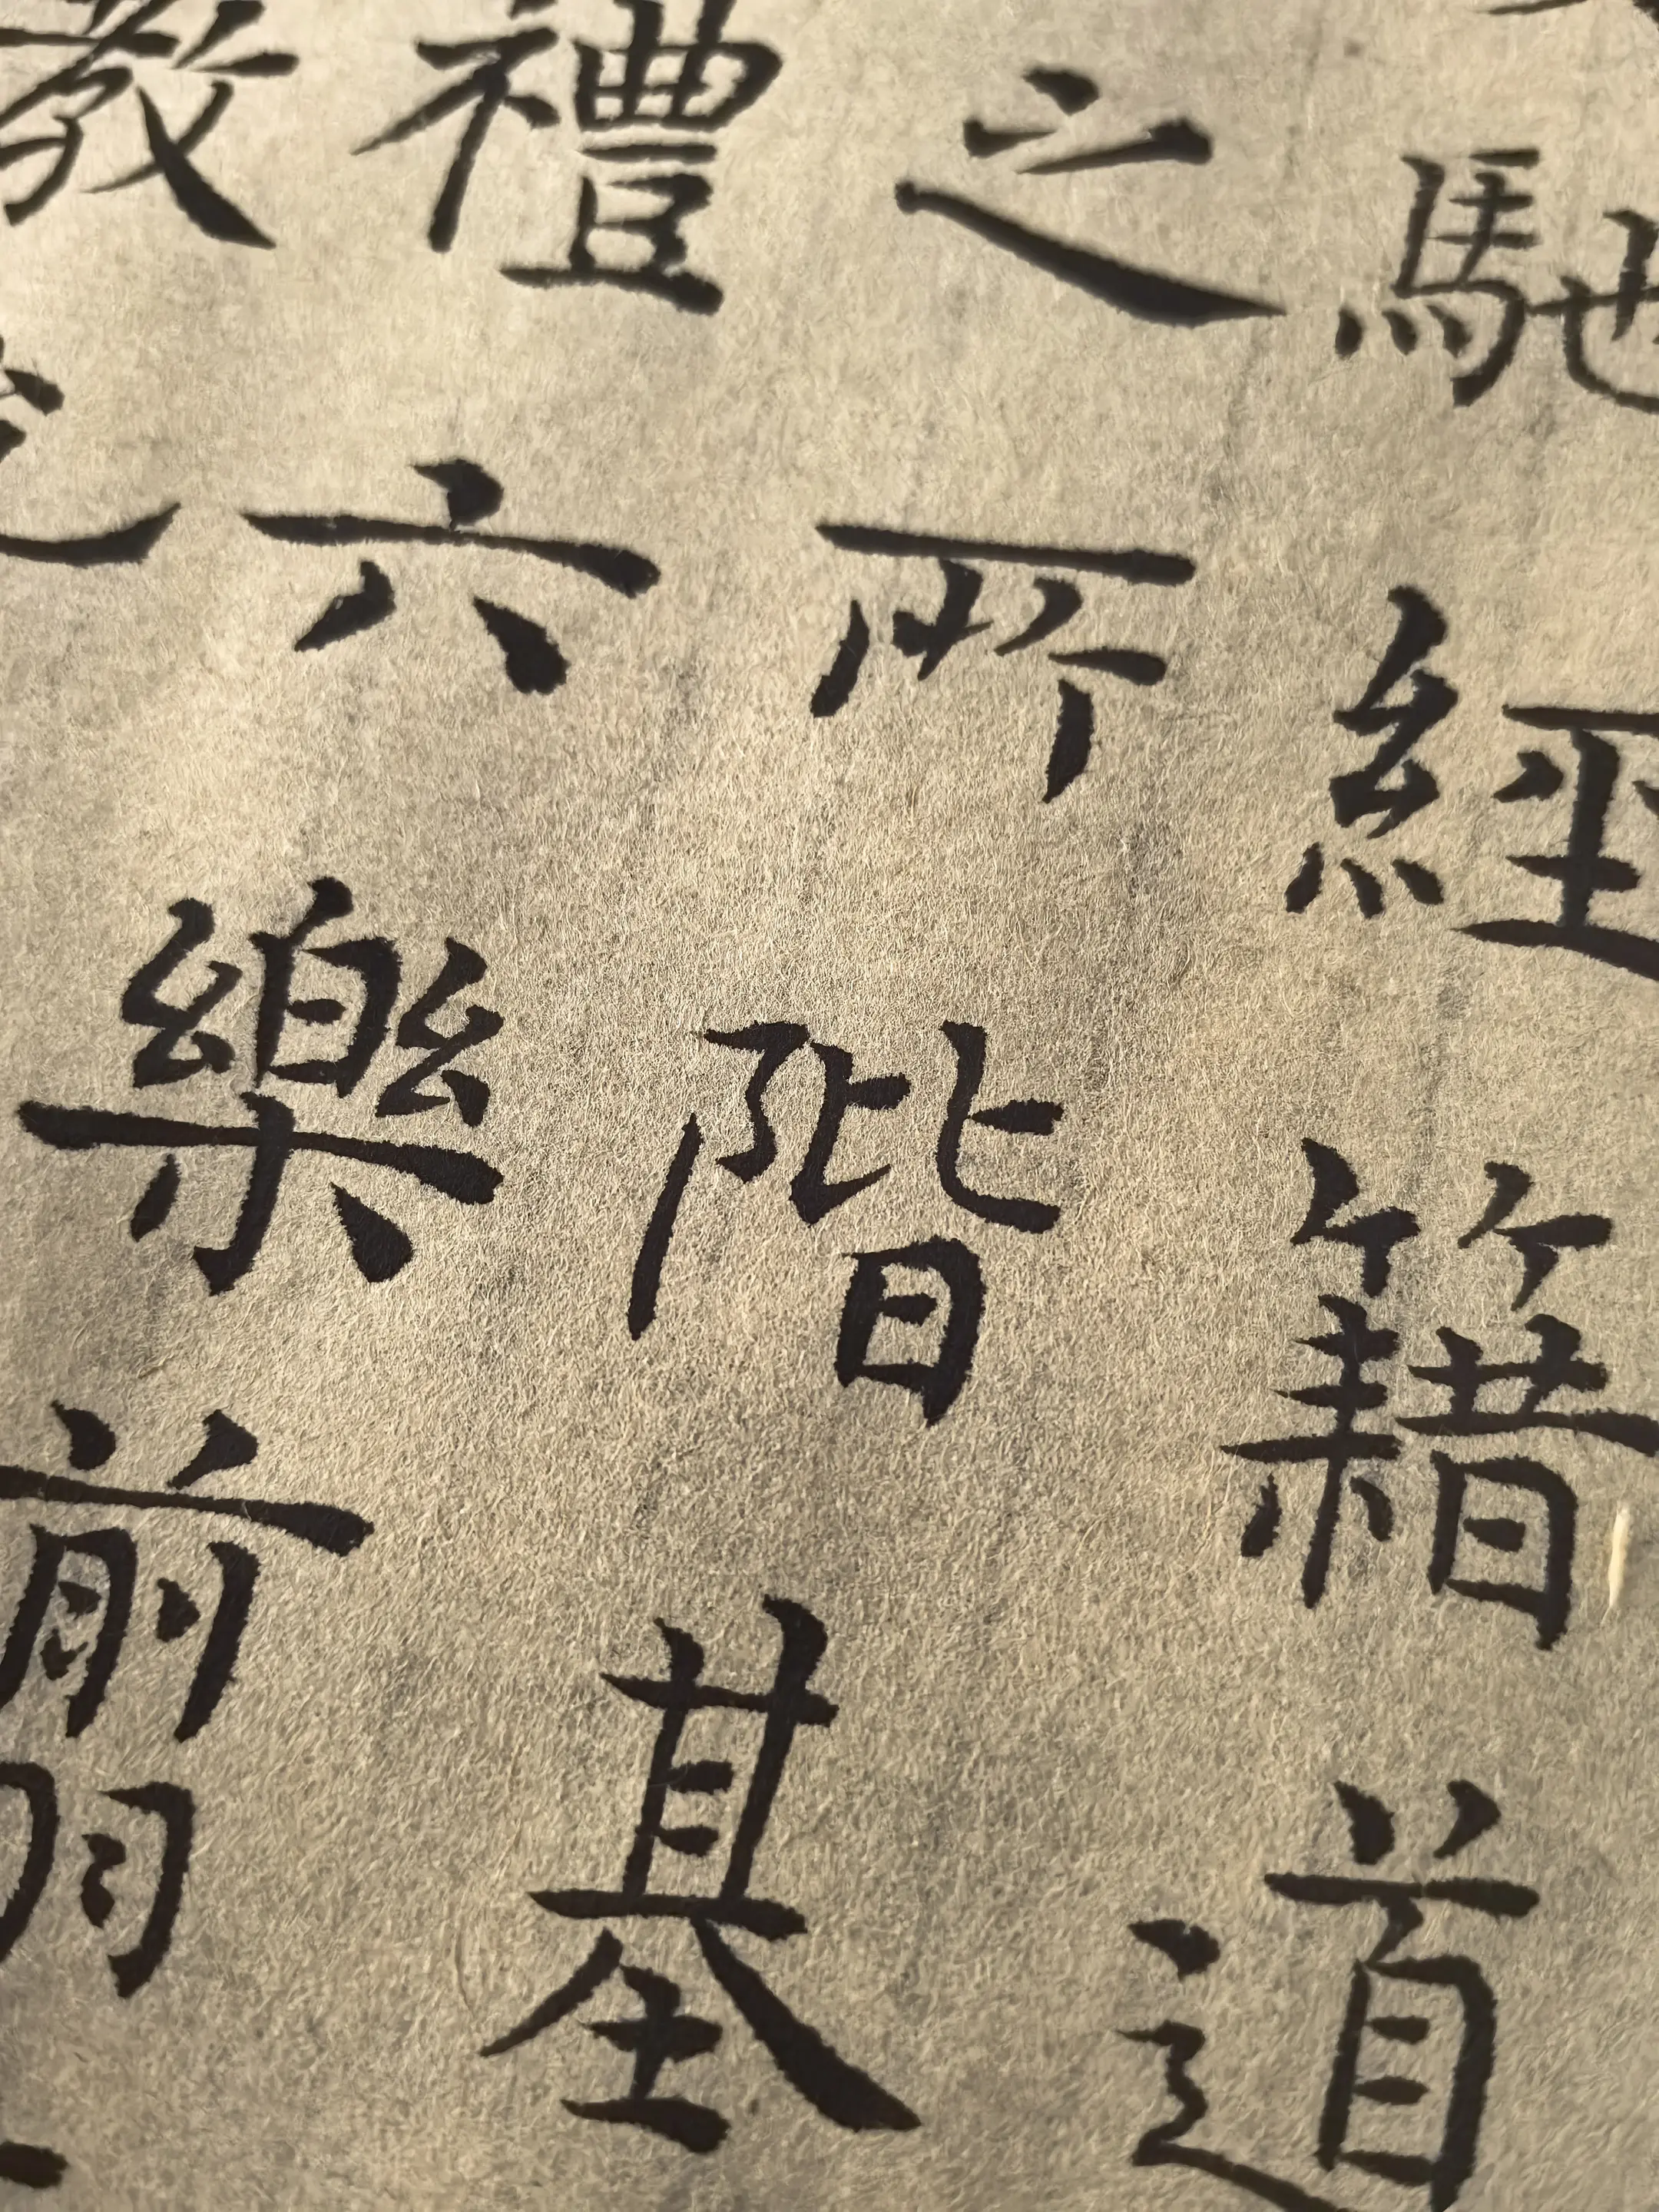 馳經籍道
之所階基
禮六樂翦
教